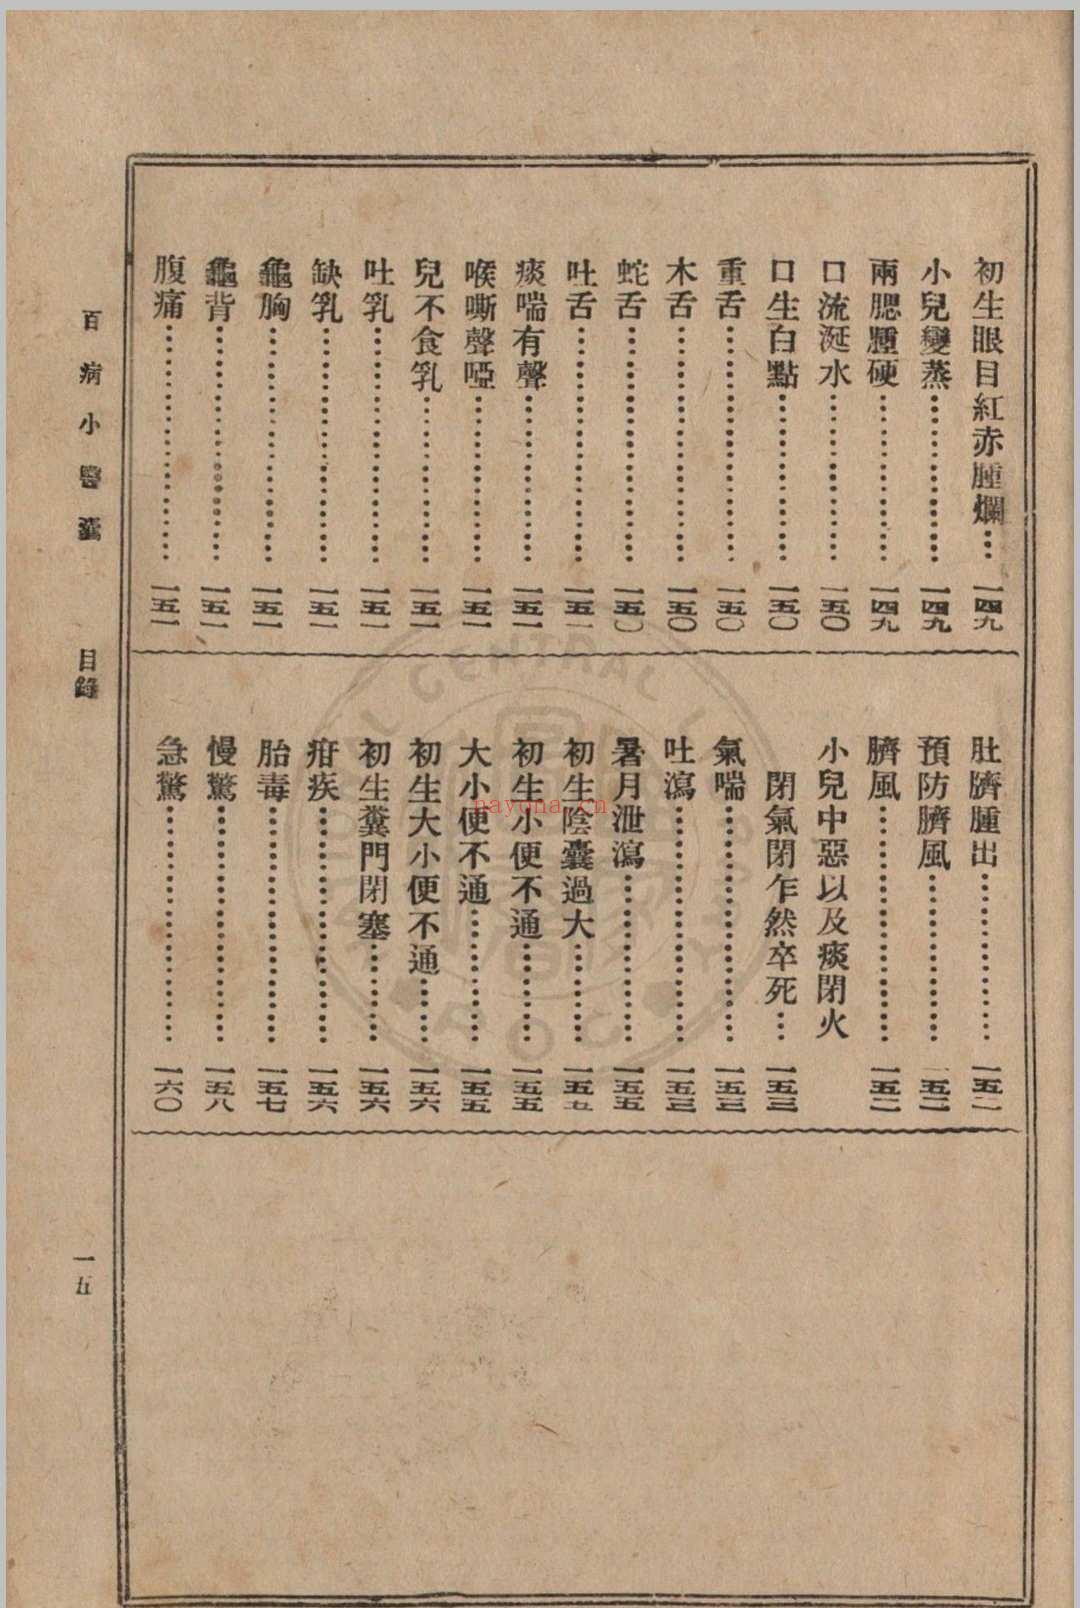 初生眼目紅赤腫爛⋯一四九
小兒變蒸⋯⋯一四九
兩腮腫硬⋯⋯一四九
口流涎水⋯⋯一五〇
口生白點⋯⋯一五〇
重舌⋯⋯一五〇
木舌⋯⋯一五〇
蛇舌⋯⋯一五〇
吐舌⋯⋯一五一
痰喘有聲⋯⋯一五一
喉嘶聲啞⋯⋯一五一
兒不食乳⋯⋯一五一
吐乳⋯⋯一五一
缺乳⋯⋯一五一
龜胸⋯⋯一五一
龜背⋯⋯一五一
腹痛⋯⋯一五一
肚臍腫出⋯⋯一五二
預防臍風⋯⋯一五二
臍風⋯⋯一五二
小兒中惡以及痰閉火
閉氣閉乍然卒死⋯一五三
氣喘⋯⋯一五三
吐瀉⋯⋯一五三
暑月泄瀉⋯⋯一五五
初生陰囊過大⋯⋯一五五
初生小便不通⋯⋯一五五
大小便不通⋯⋯一五五
初生大小便不通⋯⋯一五六
初生糞門閉塞⋯⋯一五六
疳疾⋯⋯一五六
胎毒⋯⋯一五七
慢驚⋯⋯一五八
急驚⋯⋯一六〇
百病小醫囊 目錄 一五
CENTRAL
nayona.cn